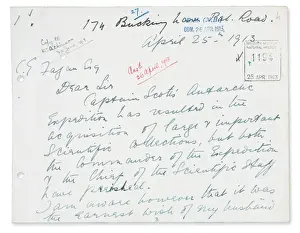 27
174 Buckingham Pal. Road.
April 25th 1913
26 April 1913
1154
25 APR 1913
C E Fagan Esq
Dear Sir
Captain Scott's Antarctic
Expedition has resulted in the
acquisition of large & important
Scientific collections, but both
the Commander of the Expedition
& the Chief of the Scientific Staff
have perished.
I am aware however that it was
the earnest wish of my husband